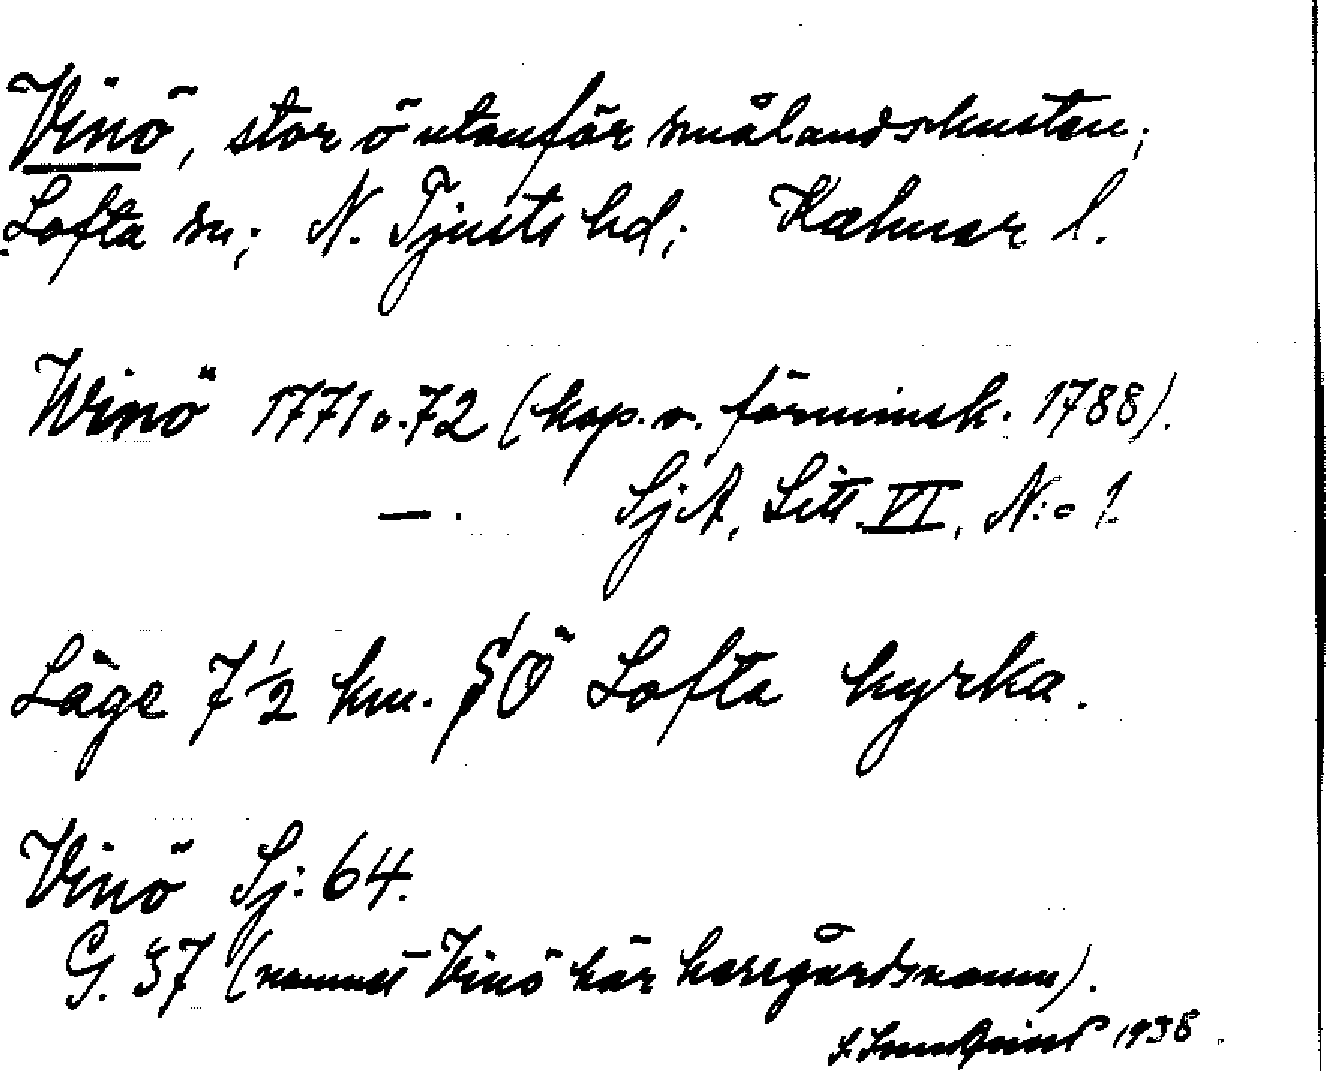 Vinö, stor ö utanför smålandskusten;
Lofta sn; N. Tjusts hd; Kalmar l.
Winö 1771 o. 72 (kop. o. förminsk. 1788).
—. SjA, Litt. VI, N:o 1
Läge 7 1/2 km. SÖ Lofta kyrka.
Vinö Sj. 64.
G. 37 (namnet Vinö här herrgårdsnamn).
1938